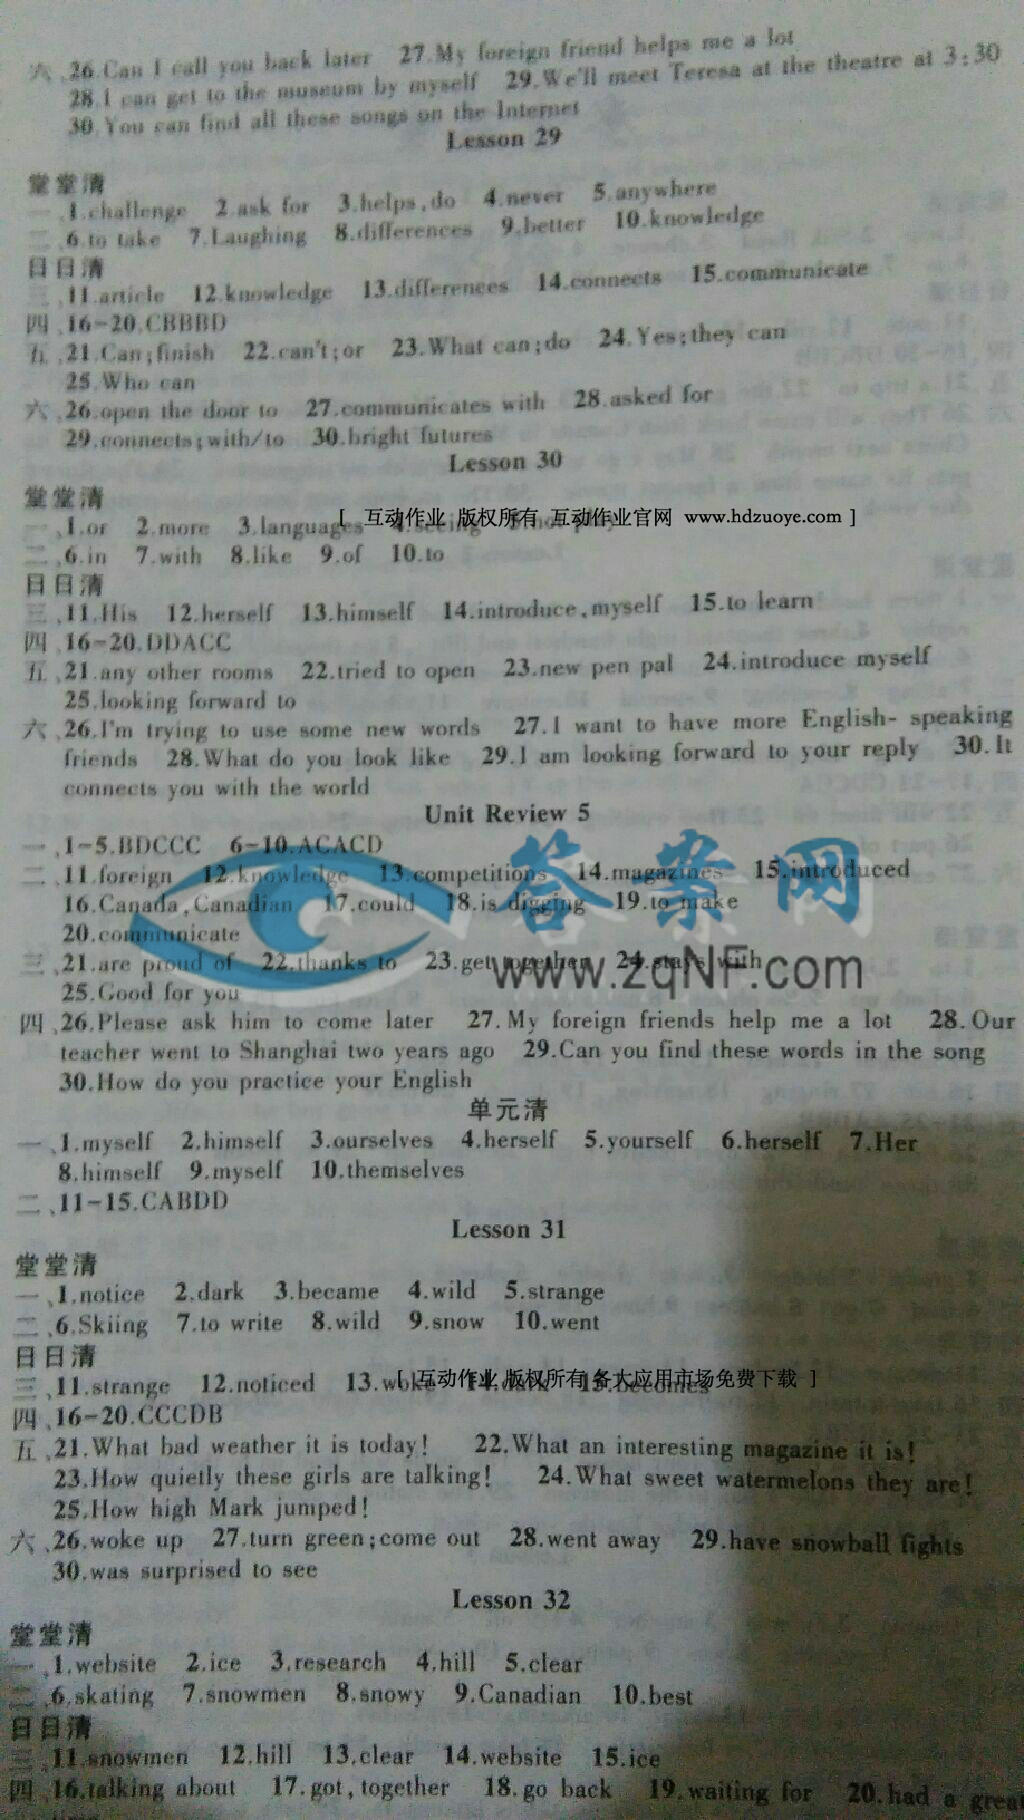 六、26.Can I call you back later 27.My foreign friend helps me a lot
28.I can get to the museum by myself 29.We'll meet Teresa at the theatre at 3:30
30.You can find all these songs on the Internet
Lesson 29
堂堂清
一、1.challenge 2.ask for 3.helps,do 4.never 5.anywhere
二、6.to take 7.Laughing 8.differences 9.better 10.knowledge
日日清
三、11.article 12.knowledge 13.differences 14.connects 15.communicate
四、16-20.CBBBD
五、21.Can;finish 22.can't;or 23.What can;do 24.Yes;they can
25.Who can
六、26.open the door to 27.communicates with 28.asked for
29.connects;with/to 30.bright futures
Lesson 30
堂堂清
一、1.or 2.more 3.languages 4.seeing
[ 互动作业 版权所有 互动作业官网 www.hdzuoye.com ]
二、6.in 7.with 8.like 9.of 10.to
日日清
三、11.His 12.herself 13.himself 14.introduce,myself 15.to learn
四、16-20.DDACC
五、21.any other rooms 22.tried to open 23.new pen pal 24.introduce myself
25.looking forward to
六、26.I'm trying to use some new words 27.I want to have more English- speaking
friends 28.What do you look like 29.I am looking forward to your reply 30.It
connects you with the world
Unit Review 5
一、1-5.BDCCC 6-10.ACACD
二、11.foreign 12.knowledge 13.competitions 14.magazines 15.introduced
16.Canada,Canadian 17.could 18.is digging 19.to make
答案网
20.communicate
三、21.are proud of 22.thanks to 23.get together 24.stays with
www.zqNF.com
25.Good for you
四、26.Please ask him to come later 27.My foreign friends help me a lot 28.Our
teacher went to Shanghai two years ago 29.Can you find these words in the song
30.How do you practice your English
单元清
一、1.myself 2.himself 3.ourselves 4.herself 5.yourself 6.herself 7.Her
8.himself 9.myself 10.themselves
二、11-15.CABDD
Lesson 31
堂堂清
一、1.notice 2.dark 3.became 4.wild 5.strange
二、6.Skiing 7.to write 8.wild 9.snow 10.went
日日清
三、11.strange 12.noticed 13.woke 14.dark 15.becomes
[ 互动作业 版权所有 各大应用市场免费下载 ]
四、16-20.CCCDB
五、21.What bad weather it is today! 22.What an interesting magazine it is!
23.How quietly these girls are talking! 24.What sweet watermelons they are!
25.How high Mark jumped!
六、26.woke up 27.turn green;come out 28.went away 29.have snowball fights
30.was surprised to see
Lesson 32
堂堂清
一、1.website 2.ice 3.research 4.hill 5.clear
二、6.skating 7.snowmen 8.snowy 9.Canadian 10.best
日日清
三、11.snowmen 12.hill 13.clear 14.website 15.ice
四、16.talking about 17.got,together 18.go back 19.waiting for 20.had a great